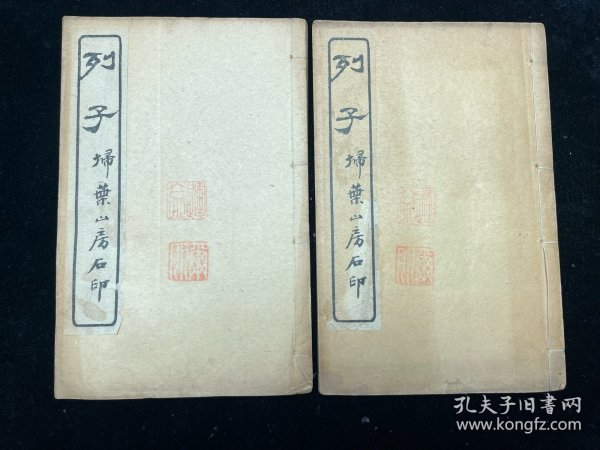 列子
埽葉山房石印
列子
埽葉山房石印
孔夫子旧书网
www.kongfz.com